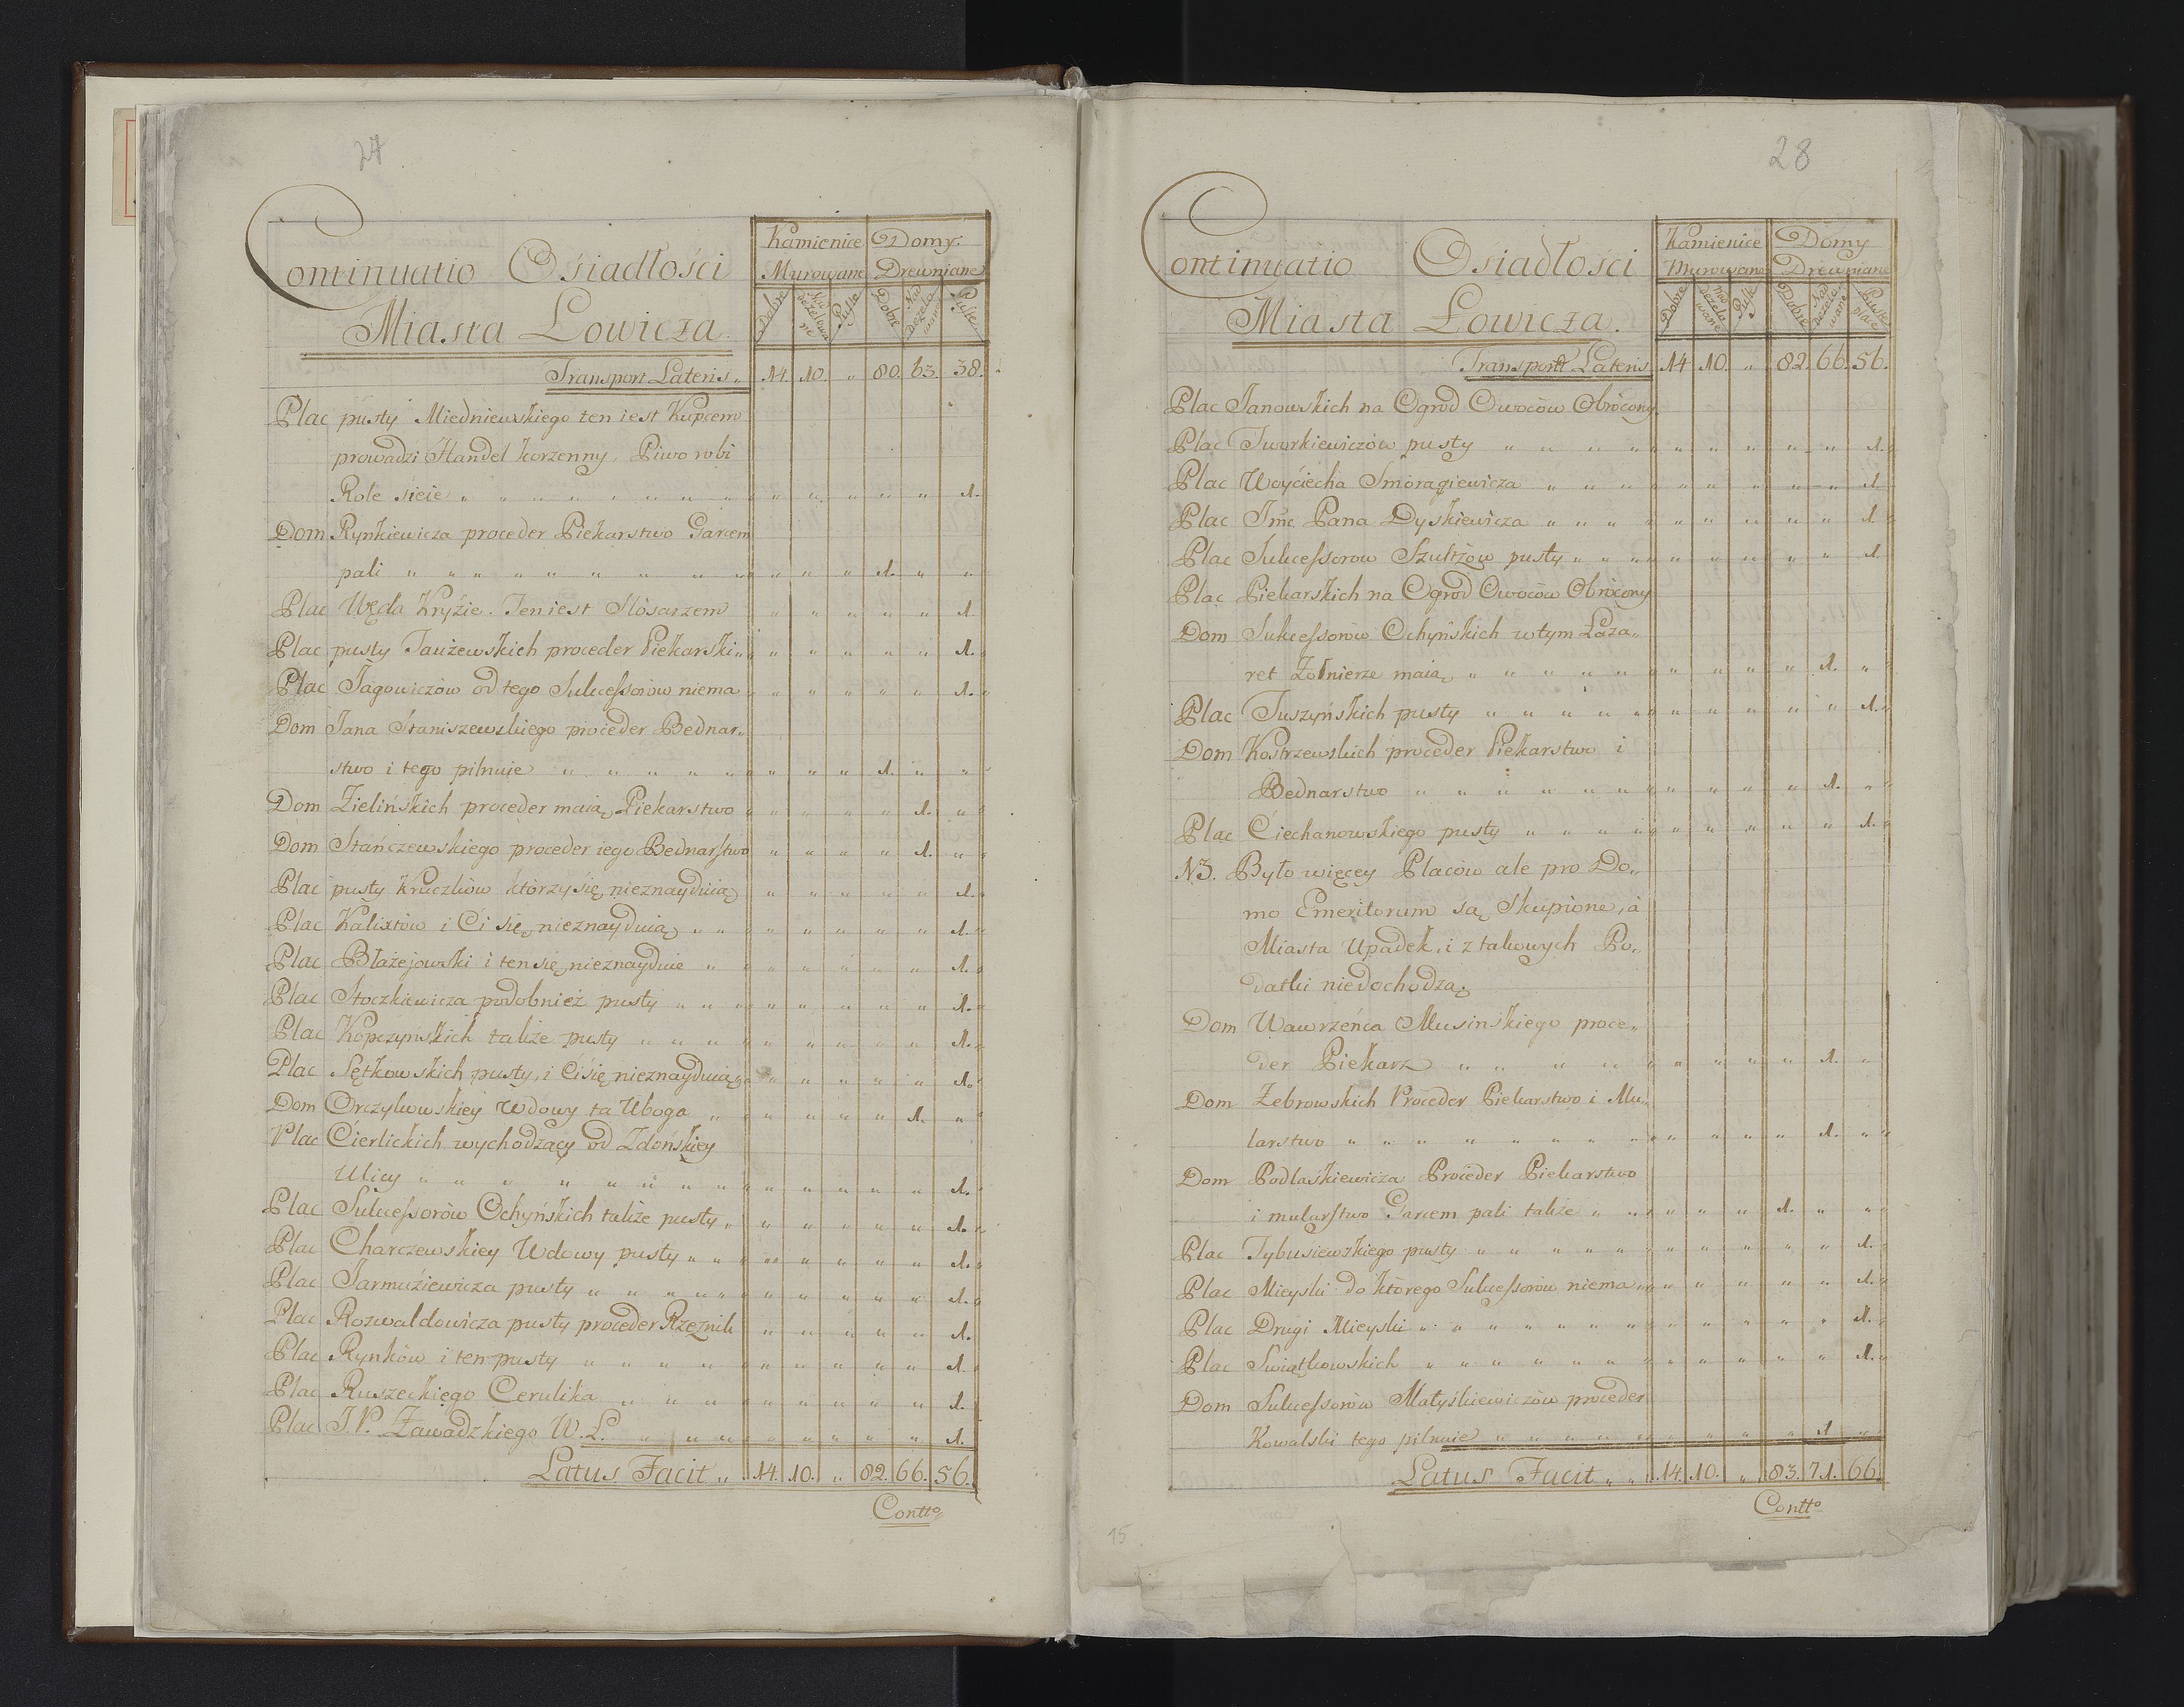 27
Continuatio Osiadłości
Miasta Łowicza.
Kamienice Murowane
Domy Drewniane
Dobre
Nad dezelowane
Puste
Dobre
Nad dezelowane
Puste
Transport Lateris „ 14. 10. „ 80. 63. 38.
Plac pusty Miedniewskiego ten iest Kupcem
prowadzi Handel korzenny, Piwo robi
Role sieie „ „ „ „ „ 1.
Dom Rynkiewicza proceder Piekarstwo Garcem
pali „ „ „ 1. „ „
Plac Węda Kryzie. Ten iest Slósarzem „ „ „ „ „ 1.
Plac pusty Tauzewskich proceder Piekarski „ „ „ „ „ 1.
Plac Jagowiczów od tego Sukcessorów niema „ „ „ „ „ 1.
Dom Jana Staniszewskiego proceder Bednar„
stwo i tego pilnuie „ „ „ 1. „ „
Dom Zielińskich proceder maią Piekarstwo „ „ „ „ 1. „
Dom Stańczewskiego proceder iego Bednarstwo „ „ „ „ 1. „
Plac pusty Kruczków którzy się nieznayduią „ „ „ „ „ 1.
Plac Kalixtów i Ci się nieznayduią „ „ „ „ „ 1.
Plac Błażejowski i ten się nieznayduie „ „ „ „ „ 1.
Plac Stoczkiewicza podobnież pusty „ „ „ „ „ 1.
Plac Kopczynskich także pusty „ „ „ „ „ 1.
Plac Sętkowskich pusty, i Ci się nieznayduią „ „ „ „ „ 1.
Dom Orczykowskiey Wdowy ta Uboga „ „ „ „ 1. „
Plac Cierlickich wychodzący od Zdońskiey
Ulicy „ „ „ „ „ 1.
Plac Sukcessorów Ochyńskich także pusty „ „ „ „ „ 1.
Plac Charczewskiey Wdowy pusty „ „ „ „ „ 1.
Plac Jarmuziewicza pusty „ „ „ „ „ 1.
Plac Rozwaldowicza pusty proceder Rzeznik „ „ „ „ „ 1.
Plac Rynków i ten pusty „ „ „ „ „ 1.
Plac Ruszeckiego Cerulika „ „ „ „ „ 1.
Plac J.P. Zawadzkiego W.L. „ „ „ „ „ 1.
Latus Facit „ 14. 10. „ 82. 66. 56.
Contto
28
Continuatio Osiadłości
Miasta Łowicza.
Kamienice Murowane
Domy Drewniane
Dobre
Nad dezelowane
Puste
Dobre
Nad dezelowane
Puste place
Transport Lateris 14 10. „ 82. 66. 56.
Plac Janowskich na Ogrod Owoców Obrócony
Plac Tworkiewiczów pusty „ „ „ „ „ 1.
Plac Woyciecha Smoragiewicza „ „ „ „ „ 1.
Plac Jmć Pana Dyskiewicza „ „ „ „ „ 1.
Plac Sukcessorow Szultzow pusty „ „ „ „ „ 1.
Plac Piekarskich na Ogrod Owoców Obrócony
Dom Sukcessorów Ochyńskich w tym Laza„
ret Żołnierze maią „ „ „ „ 1. „
Plac Tuszyńskich pusty „ „ „ „ „ 1.
Dom Kostrzewskich proceder Piekarstwo i
Bednarstwo „ „ „ „ 1. „
Plac Ciechanowskiego pusty „ „ „ „ „ 1.
NB. Było więcey Placow ale pro Do„
mo Emeritorum są Skupione, á
Miasta Upadek, i z takowych Po„
datki niedochodzą
Dom Wawrzeńca Musinskiego proce„
der Piekarz „ „ „ „ 1. „
Dom Zebrowskich Proceder Piekarstwo i Mu„
larstwo „ „ „ „ 1. „
Dom Podlaśkiewicza Proceder Piekarstwo
i mularstwo Garcem pali także „ „ „ 1. „ „
Plac Tybusiewskiego pusty „ „ „ „ „ 1.
Plac Mieyski do którego Sukcessorów niema „ „ „ „ „ 1.
Plac Drugi Mieyski „ „ „ „ „ 1.
Plac Swiątkowskich „ „ „ „ „ 1.
Dom Sukcessorów Matyśkiewiczów proceder
Kowalski tego pilnuie „ „ „ „ 1 „
Latus Facit „ „ 14. 10. „ 83. 71. 66.
Contto
15